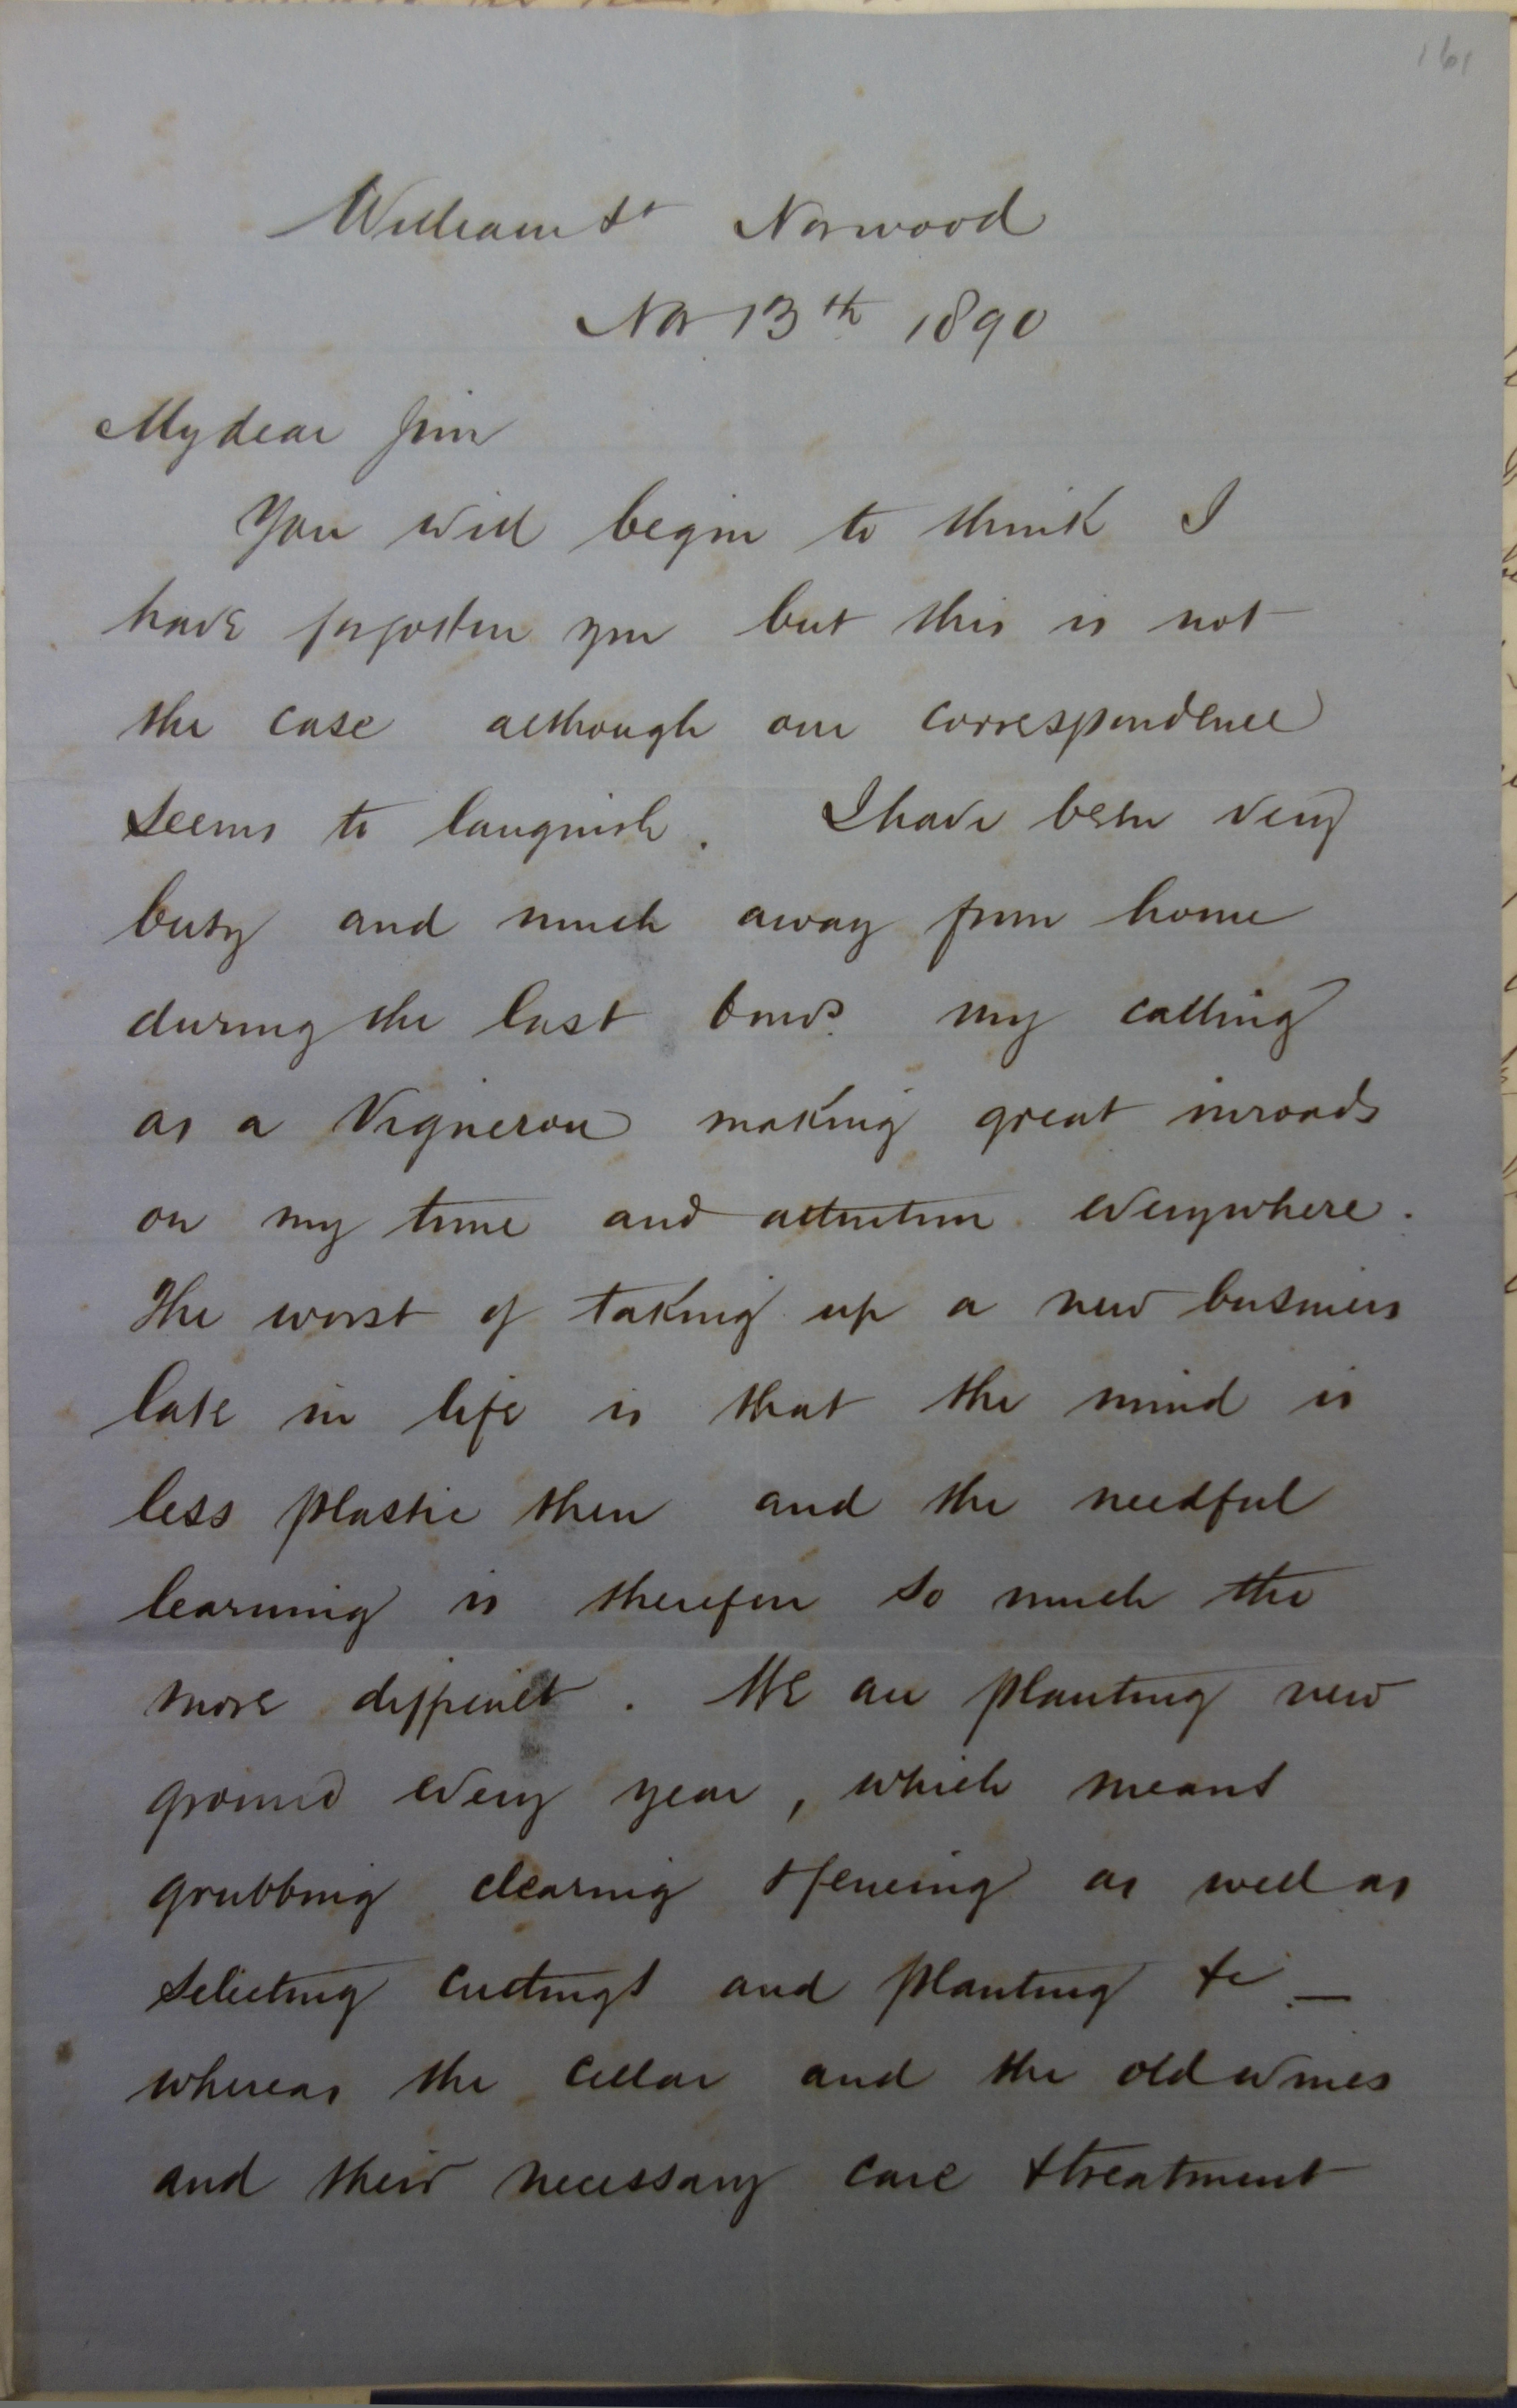 161
William St Norwood
Nov 13th 1890
My dear Jim
You will begin to think I
have forgotten you but this is not
the case although our correspondence
seems to languish. I have been very
busy and much away from home
during the last 6 mos. my calling
as a Vigneron making great inroads
on my time and attention everywhere.
The worst of taking up a new business
late in life is that the mind is
less plastic then and the needful
learning is therefore so much the
more difficult. We are planting new
ground every year, which means
grubbing clearing & fencing as well as
selecting cuttings and planting &c. —
whereas the cellar and the old wines
and their necessary care & treatment